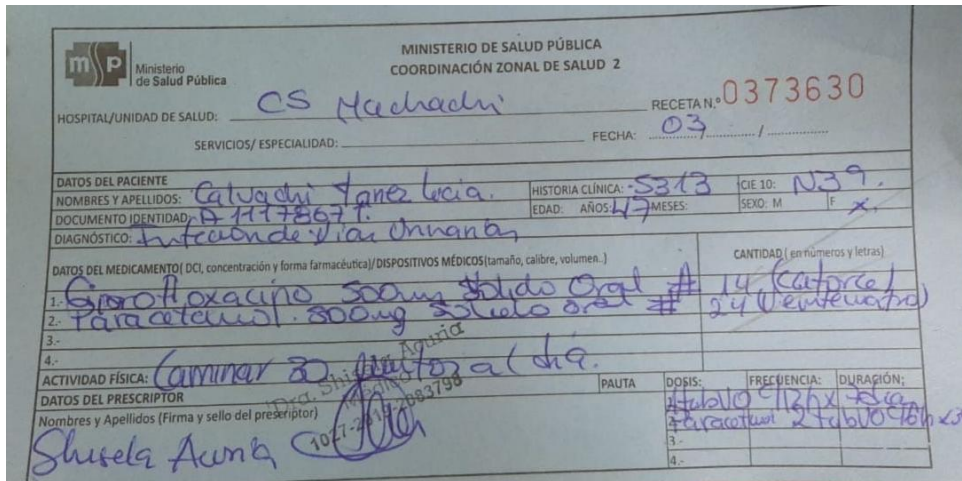 msp Ministerio de Salud Pública
MINISTERIO DE SALUD PÚBLICA
COORDINACIÓN ZONAL DE SALUD 2
HOSPITAL/UNIDAD DE SALUD: CS Machachi RECETA N.º 0373630
SERVICIOS/ ESPECIALIDAD: FECHA: 03 / /
DATOS DEL PACIENTE
NOMBRES Y APELLIDOS: Calvachi Yanez Lucia. HISTORIA CLÍNICA: 5313 CIE 10: N39.
DOCUMENTO IDENTIDAD: EDAD: AÑOS: 47 MESES: SEXO: M F x.
DIAGNÓSTICO: Infección de Vías Urinarias
DATOS DEL MEDICAMENTO( DCI, concentración y forma farmacéutica)/DISPOSITIVOS MÉDICOS(tamaño, calibre, volumen..) CANTIDAD ( en números y letras)
1.- 500mg Sólido Oral # 14 (catorce)
2.- Paracetamol. 500mg sólido oral # 24 (veinticuatro)
3.-
4.-
ACTIVIDAD FÍSICA: Caminar 30 al día.
DATOS DEL PRESCRIPTOR PAUTA DOSIS: FRECUENCIA: DURACIÓN;
Nombres y Apellidos (Firma y sello del prescriptor) 1 tab VO C/12h x 7 días
Paracetamol 2 tab VO C/6h x3
3.-
4.-
Dra. Acuria
Médico
Acuria